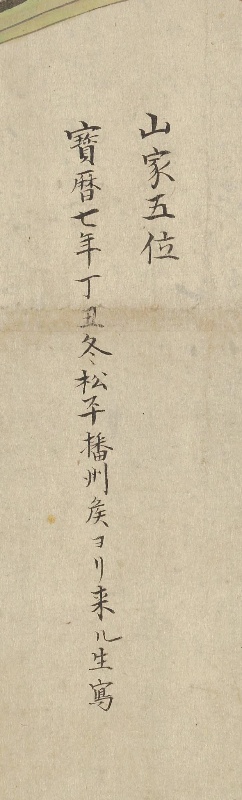 山家五位
寳暦七年丁丑冬松平播州侯ヨリ来ル生寫